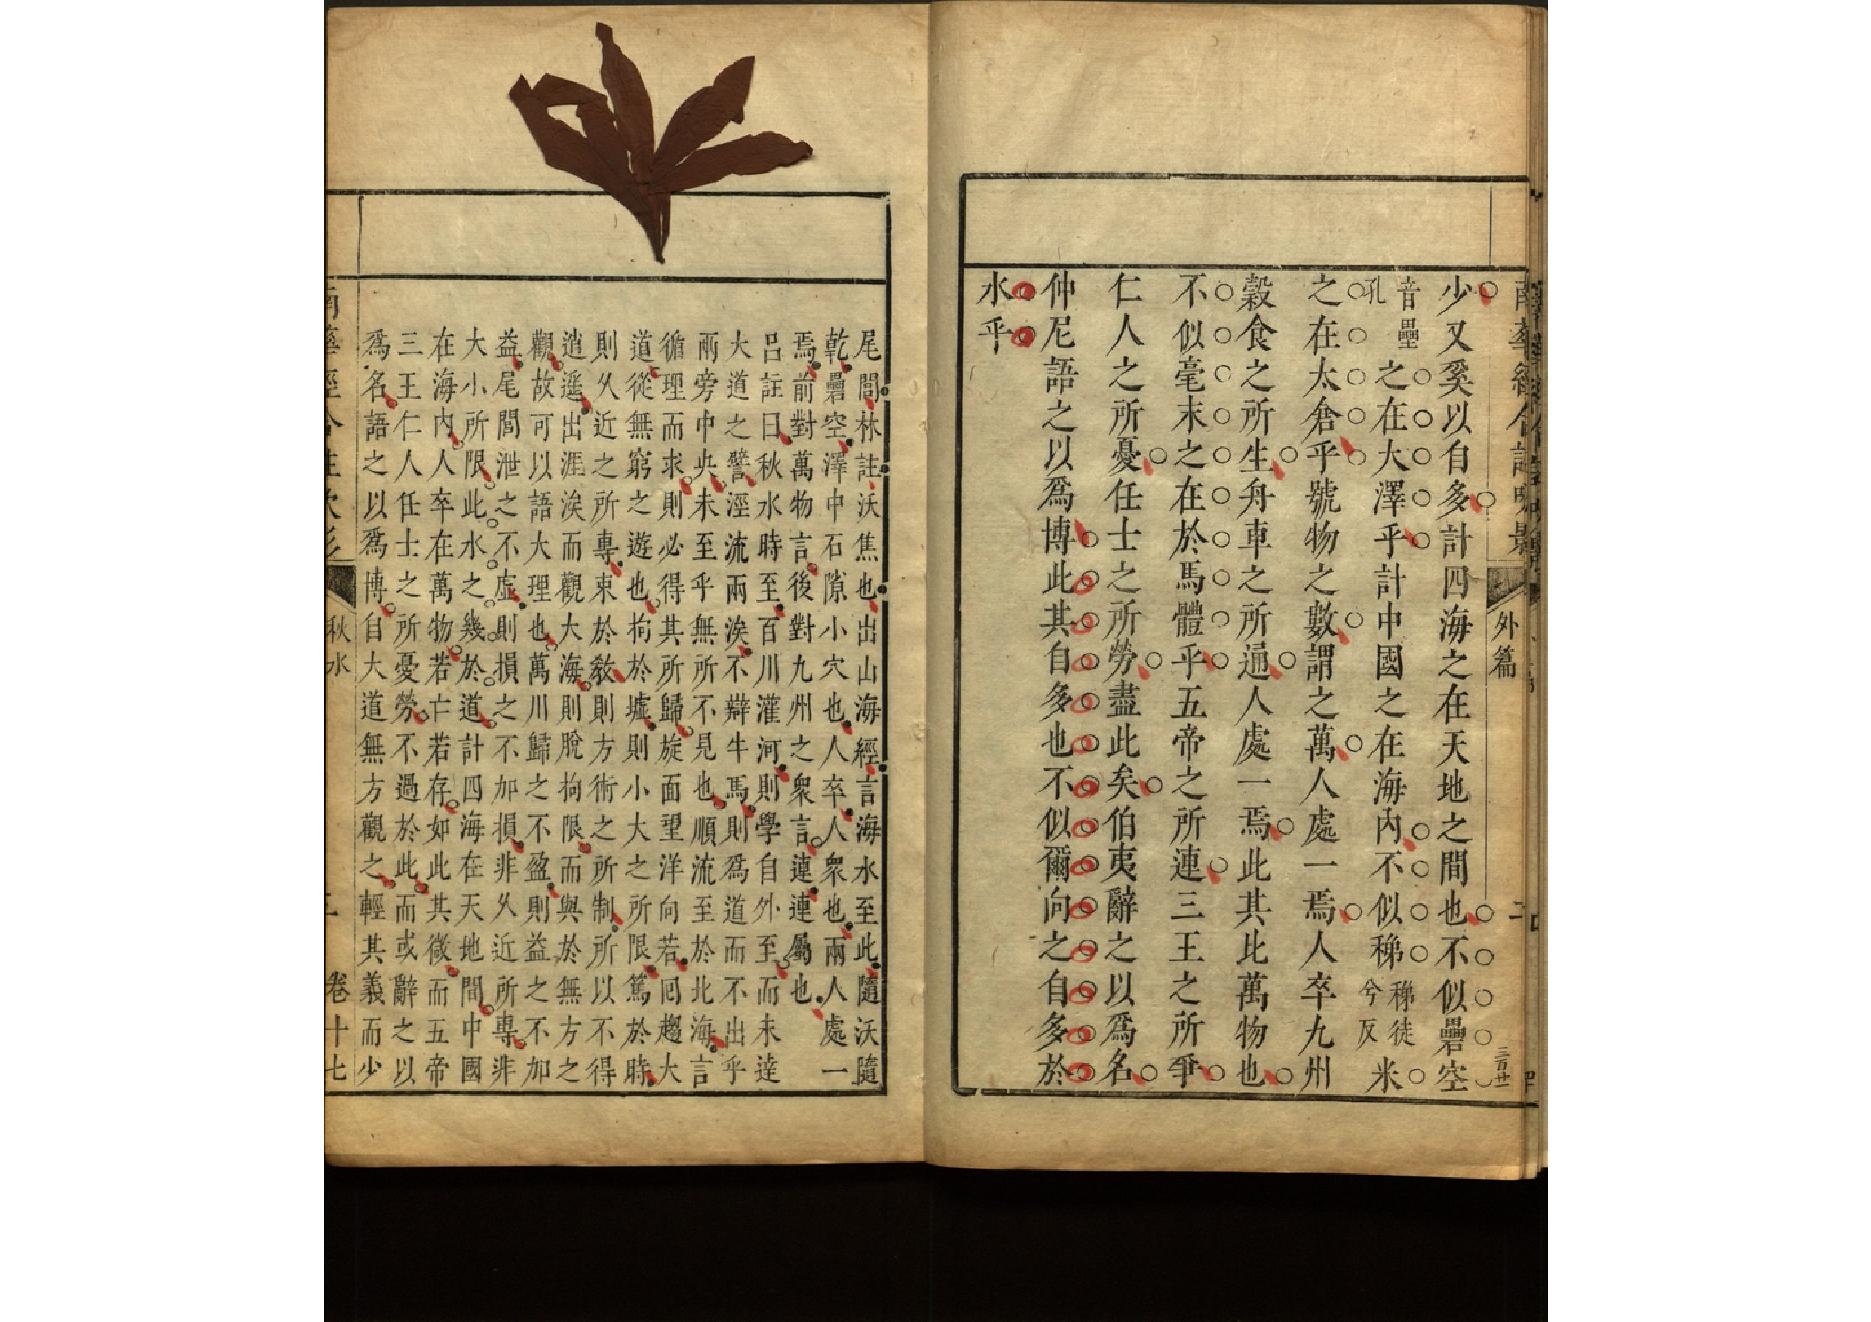 外篇
三百廿二
少又奚以自多計四海之在天地之間也不似礨空
音壘
孔
之在大澤乎計中國之在海內不似稊
稊徒
兮反
米
之在太倉乎號物之數謂之萬人處一焉人卒九州
穀食之所生舟車之所通人處一焉此其比萬物也
不似毫末之在於馬體乎五帝之所連三王之所爭
仁人之所憂任士之所勞盡此矣伯夷辭之以為名
仲尼語之以為博此其自多也不似爾向之自多於
水乎
尾閭林註沃焦也出山海經言海水至此隨沃隨
乾礨空澤中石隙小穴也人卒人衆也兩人處一
焉前對萬物言後對九州之衆言連連屬也
呂註曰秋水時至百川灌河則學自外至而未達
大道之譬涇流兩涘不辯牛馬則爲道而不出乎
兩旁中央未至乎無所不見也順流至於北海言
循理而求則必得其所歸旋面望洋向若囘趨大
道從無窮之遊也拘於墟則小大之所限篤於時
則久近之所專束於敎則方術之所制所以不得
逍遥出涯涘而觀大海則脫拘限而與於無方之
觀故可以語大理也萬川歸之不盈則益之不加
益尾閭泄之不虛則損之不加損非久近所專非
大小所限此水之幾於道計四海在天地間中國
在海內人卒在萬物若亡若存如此其微而五帝
三王仁人任士之所憂勞不過於此而或辭之以
爲名語之以爲博自大道無方觀之輕其義而少
秋水
卷十七